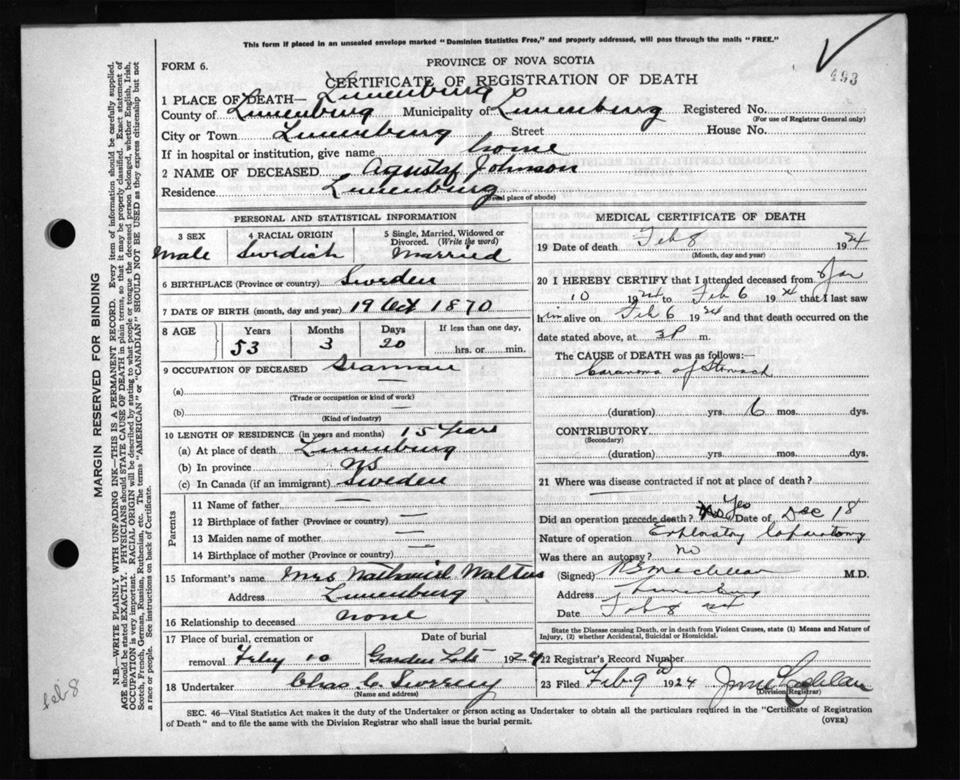 This form if placed in an unsealed envelope marked "Dominion Statistics Free," and properly addressed, will pass through the mails "FREE."
FORM 6.
PROVINCE OF NOVA SCOTIA
CERTIFICATE OF REGISTRATION OF DEATH
493
1 PLACE OF DEATH— Lunenburg
County of Lunenburg Municipality of Lunenburg Registered No.
(For use of Registrar General only)
City or Town Lunenburg Street House No.
If in hospital or institution, give name home
2 NAME OF DECEASED Agustaf Johnson
Residence Lunenburg
(Usual place of abode)
PERSONAL AND STATISTICAL INFORMATION
3 SEX 4 RACIAL ORIGIN 5 Single, Married, Widowed or Divorced. (Write the word)
Male Swedish Married
6 BIRTHPLACE (Province or country) Sweden
7 DATE OF BIRTH (month, day and year) 19 Oct 1870
8 AGE Years Months Days If less than one day,
53 3 20 hrs. or min.
9 OCCUPATION OF DECEASED Seaman
(a) —
(Trade or occupation or kind of work)
(b) —
(Kind of industry)
10 LENGTH OF RESIDENCE (in years and months) 15 Years
(a) At place of death Lunenburg
(b) In province NS
(c) In Canada (if an immigrant) Sweden
Parents
11 Name of father —
12 Birthplace of father (Province or country) —
13 Maiden name of mother —
14 Birthplace of mother (Province or country) —
15 Informant's name Mrs Nathaniel Walters
Address Lunenburg
16 Relationship to deceased none
17 Place of burial, cremation or Date of burial
removal Feby 10 Garden Lots 1924
18 Undertaker Chas C Sweeny
(Name and address)
MEDICAL CERTIFICATE OF DEATH
19 Date of death Feb 8 1924
(Month, day and year)
20 I HEREBY CERTIFY that I attended deceased from Jan
10 1924 to Feb 6 1924 that I last saw
him alive on Feb 6 1924 and that death occurred on the
date stated above, at 3P m.
The CAUSE of DEATH was as follows:—
Carcanoma of Stomach
(duration) yrs. 6 mos. dys.
CONTRIBUTORY
(Secondary)
(duration) yrs. mos. dys.
21 Where was disease contracted if not at place of death?
Did an operation precede death? No Yes Date of Dec 18
Nature of operation Exploratory laparotomy
Was there an autopsy? no
(Signed) M.D.
Address Lunenburg
Date Feb 8 24
State the Disease causing Death, or in death from Violent Causes, state (1) Means and Nature of Injury, (2) whether Accidental, Suicidal or Homicidal.
22 Registrar's Record Number
23 Filed Feb 9 1924
(Division Registrar)
SEC. 46—Vital Statistics Act makes it the duty of the Undertaker or person acting as Undertaker to obtain all the particulars required in the "Certificate of Registration
of Death" and to file the same with the Division Registrar who shall issue the burial permit.
(OVER)
MARGIN RESERVED FOR BINDING
N.B.—WRITE PLAINLY WITH UNFADING INK—THIS IS A PERMANENT RECORD. Every item of information should be carefully supplied.
AGE should be stated EXACTLY. PHYSICIANS should STATE CAUSE OF DEATH in plain terms, so that it may be properly classified. Exact statement of
OCCUPATION is very important. RACIAL ORIGIN will be described by stating to what people or tongue the deceased person belonged, whether English, Irish,
Scotch, French, German, Russian, Ruthenian, etc. The terms "AMERICAN" or "CANADIAN" SHOULD NOT BE USED as they express citizenship but not
a race or people. See instructions on back of Certificate.
Feb 8